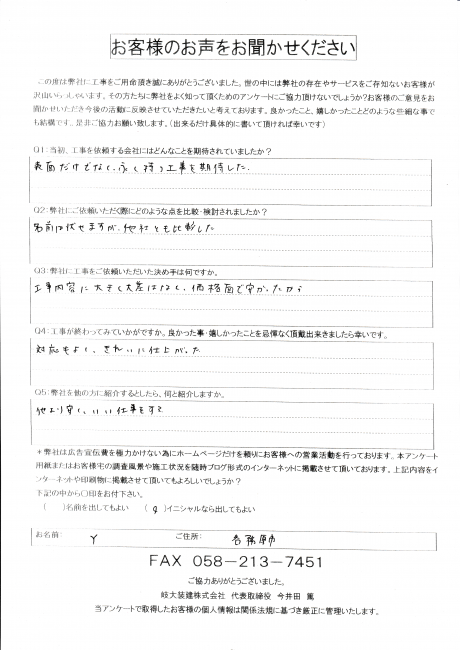 お客様のお声をお聞かせください
この度は弊社に工事をご用命頂き誠にありがとうございました。世の中には弊社の存在やサービスをご存知ないお客様が
沢山いらっしゃいます。その方たちに弊社をよく知って頂くためのアンケートにご協力頂けないでしょうか？お客様のご意見をお
聞かせいただき今後の活動に反映させていただきたいと考えております。良かったこと、嬉しかったことどのような些細な事で
も結構です。是非ご協力お願い致します。（出来るだけ具体的に書いて頂ければ幸いです）
Q1：当初、工事を依頼する会社にはどんなことを期待されていましたか？
表面だけでなく、永く持つ工事を期待した。
Q2：弊社にご依頼いただく際にどのような点を比較・検討されましたか？
名前は伏せますが、他社とも比較した
Q3：弊社に工事をご依頼いただいた決め手は何ですか。
工事内容に大きく大差はなく、価格面で安かったから
Q4：工事が終わってみていかがですか。良かった事・嬉しかったことを忌憚なく頂戴出来きましたら幸いです。
対応もよく、きれいに仕上がった
Q5：弊社を他の方に紹介するとしたら、何と紹介しますか。
他より安く、いい仕事をする
＊弊社は広告宣伝費を極力かけない為にホームページだけを頼りにお客様への営業活動を行っております。本アンケート
用紙またはお客様宅の調査風景や施工状況を随時ブログ形式のインターネットに掲載させて頂いております。上記内容をイ
ンターネットや印刷物に掲載させて頂いてもよろしいでしょうか？
下記の中から〇印をお付下さい。
（　　）名前を出してもよい　（　　）イニシャルなら出してもよい
お名前　Y　ご住所：　各務原市
FAX 058－213－7451
ご協力ありがとうございました。
岐大装建株式会社 代表取締役 今井田 篤
当アンケートで取得したお客様の個人情報は関係法規に基づき厳正に管理いたします。